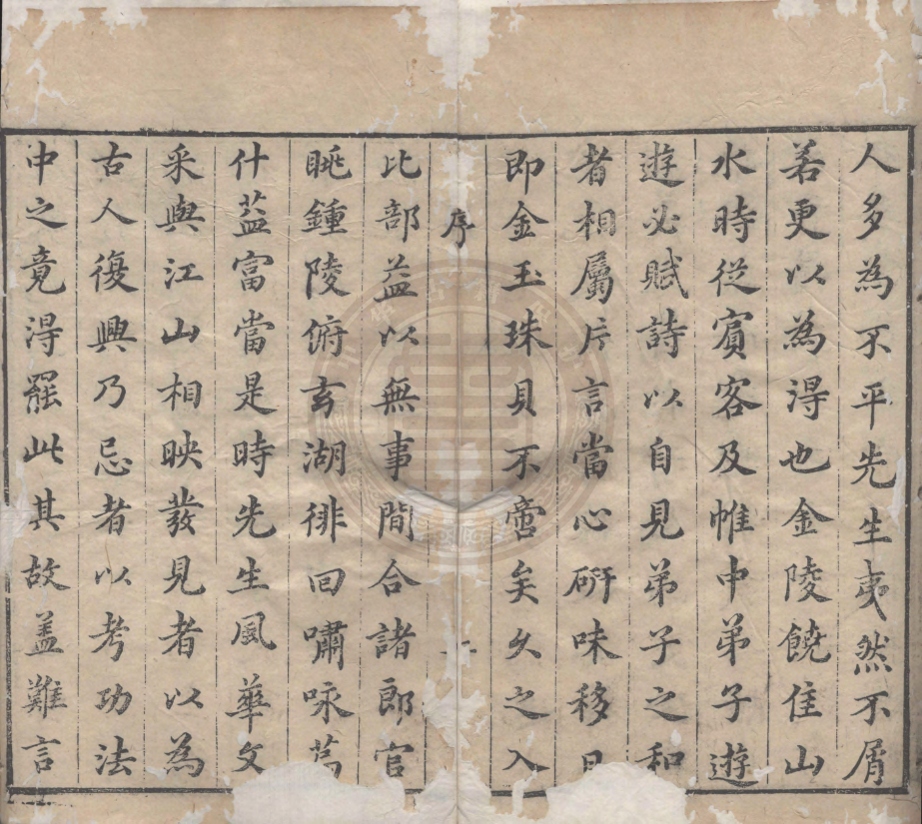 人多為不平先生夷然不屑
若更以為得也金陵饒佳山
水時從賔客及帷中弟子遊
遊必賦詩以自見弟子之和
者相屬片言當心硏味移日
即金玉珠貝不啻矣久之入
序
比部益以無事間合諸郎官
眺鍾陵俯玄湖徘回嘯咏萬
什葢富當是時先生風華文
采與江山相映發見者以為
古人復興乃忌者以考功法
中之竟得罷此其故盖難言